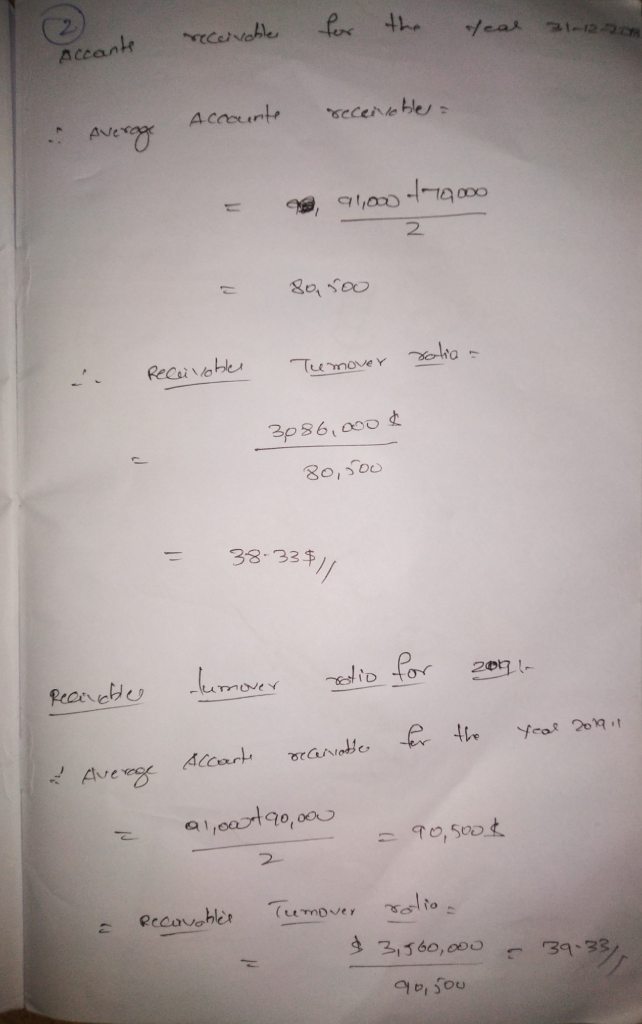 2
Accounts receivables for the year 31-12-2018
∴ Average Accounts receivables =
= 91,000 + 70,000
2
= 80,500
∴ Receivables Turnover ratio =
= 3,086,000 $
80,500
= 38.33 $ //
Receivables turnover ratio for 2019 :-
∴ Average Accounts receivables for the year 2019 "
= 91,000 + 90,000
2
= 90,500 $
= Receivables Turnover ratio =
= $ 3,560,000
90,500
= 39.33 //